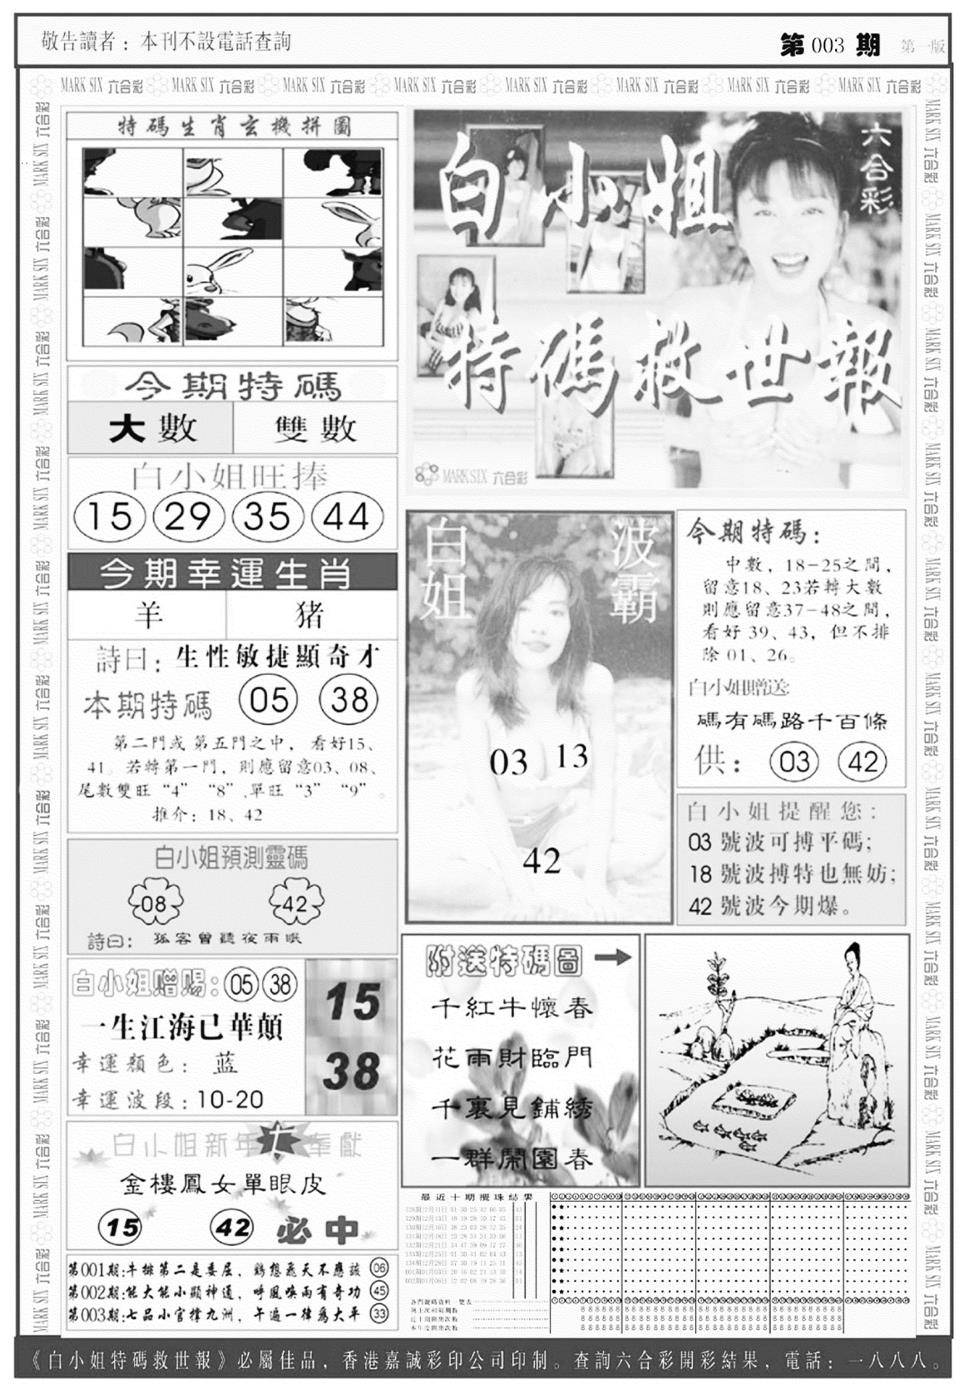 敬告讀者：本刊不設電話查詢
第003期 第一版
MARK SIX 六合彩 MARK SIX 六合彩 MARK SIX 六合彩 MARK SIX 六合彩 MARK SIX 六合彩 MARK SIX 六合彩 MARK SIX 六合彩 MARK SIX 六合彩
特碼生肖玄機拼圖
白小姐
六合彩
特碼救世報
MARK SIX 六合彩
今期特碼
大數 雙數
白小姐旺捧
15 29 35 44
今期幸運生肖
羊 猪
詩曰：生性敏捷顯奇才
本期特碼 05 38
第二門或第五門之中，看好15、
41。若轉第一門，則應留意03、08、
尾數雙旺“4”“8”、單旺“3”“9”。
推介：18、42
白小姐預測靈碼
08 42
詩曰：孤客曾聽夜雨眠
白小姐赠赐：05 38
一生江海已華顛
幸運顏色：蓝
幸運波段：10-20
15
38
白小姐新年 奉獻
金樓鳳女單眼皮
15 42 必中
第001期:牛排第二是委屈，鶴想飛天不應該 06
第002期:能大能小顯神通，呼風喚雨有奇功 45
第003期:七品小官擇九洲，午遍一律爲大平 33
白姐 波霸
03 13
42
今期特碼：
中數，18-25之間，
留意18、23若轉大數
則應留意37-48之間，
看好39、43，但不排
除01、26。
白小姐贈送:
碼有碼路千百條
供：03 42
白小姐提醒您：
03 號波可搏平碼；
18 號波搏特也無妨；
42 號波今期爆。
附送特碼圖
千紅牛懷春
花雨財臨門
千裏見鋪綉
一群鬧園春
最近十期攪珠結果
《白小姐特碼救世報》必屬佳品，香港嘉誠彩印公司印制。查詢六合彩開彩結果，電話：一八八八。